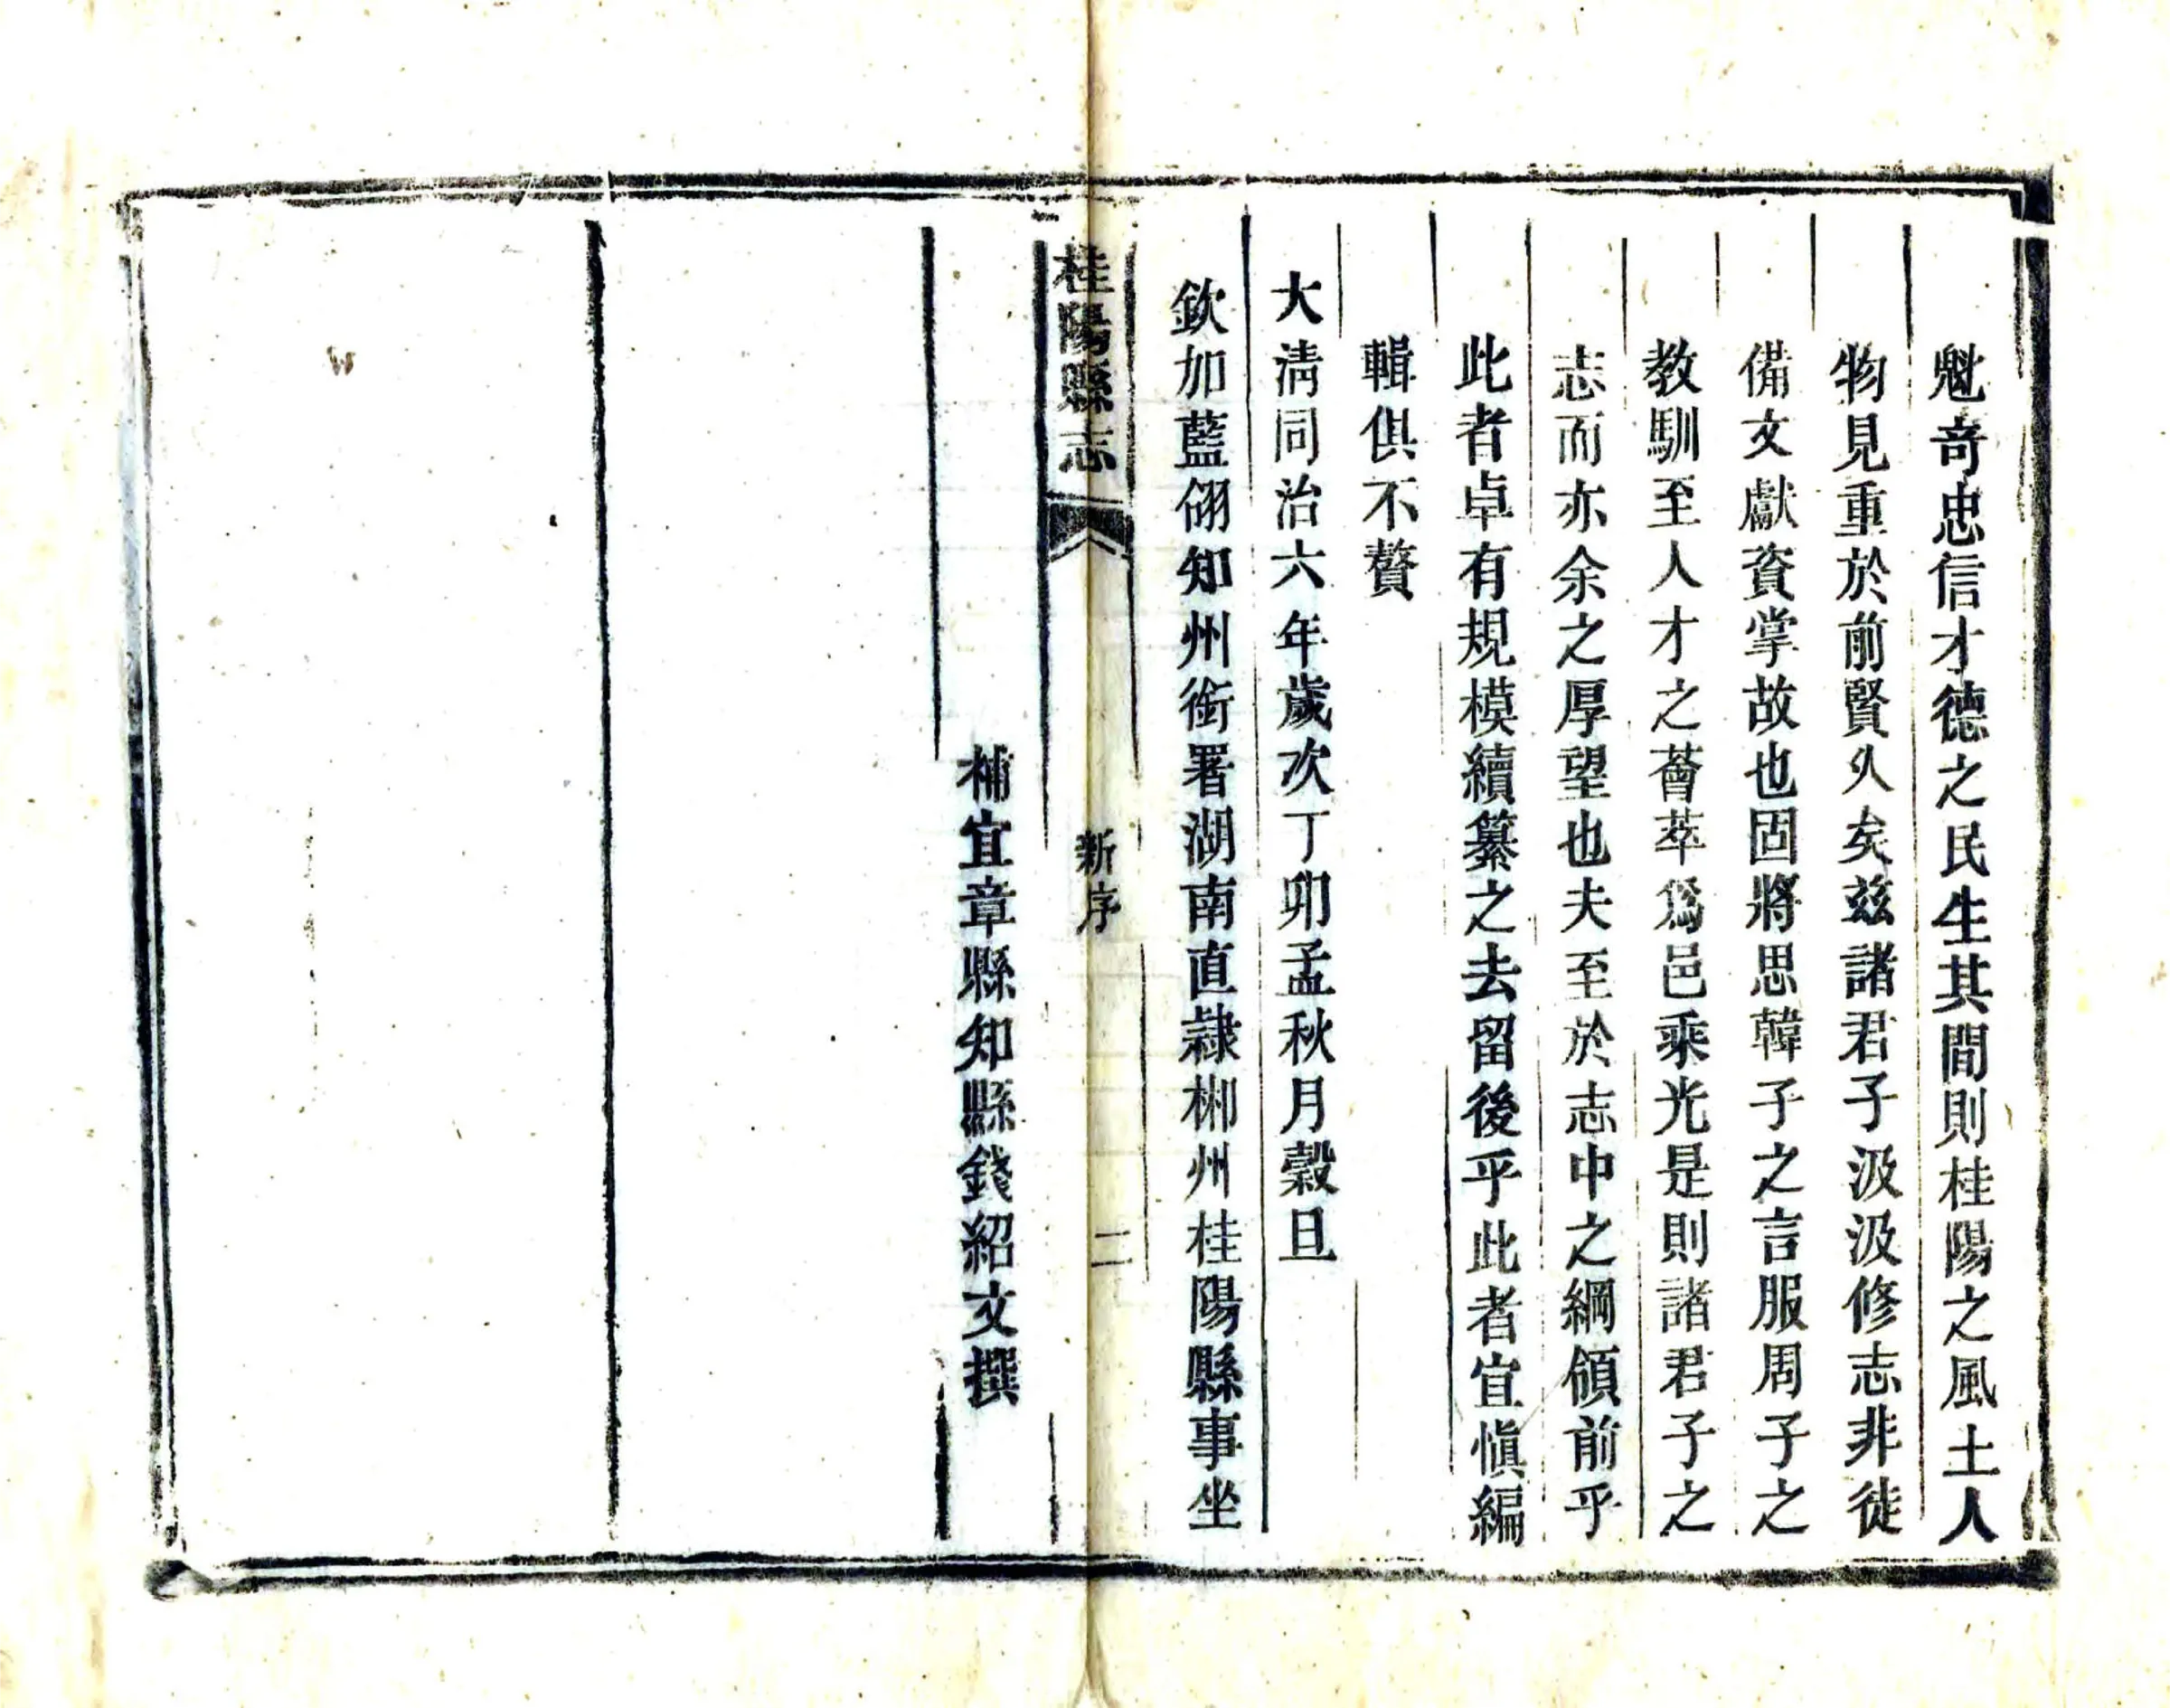 魁奇忠信才德之民生其間則桂陽之風土人
物見重於前賢久矣兹諸君子汲汲修志非徒
備文獻資掌故也固將思韓子之言服周子之
教馴至人才之薈萃爲邑乘光是則諸君子之
志而亦余之厚望也夫至於志中之綱領前乎
此者卓有規模續纂之去留後乎此者宜愼編
輯俱不贅
大淸同治六年歲次丁卯孟秋月穀旦
欽加藍翎知州銜署湖南直隷郴州桂陽縣事坐
桂陽縣志
新序
二
補宜章縣知縣錢紹文撰